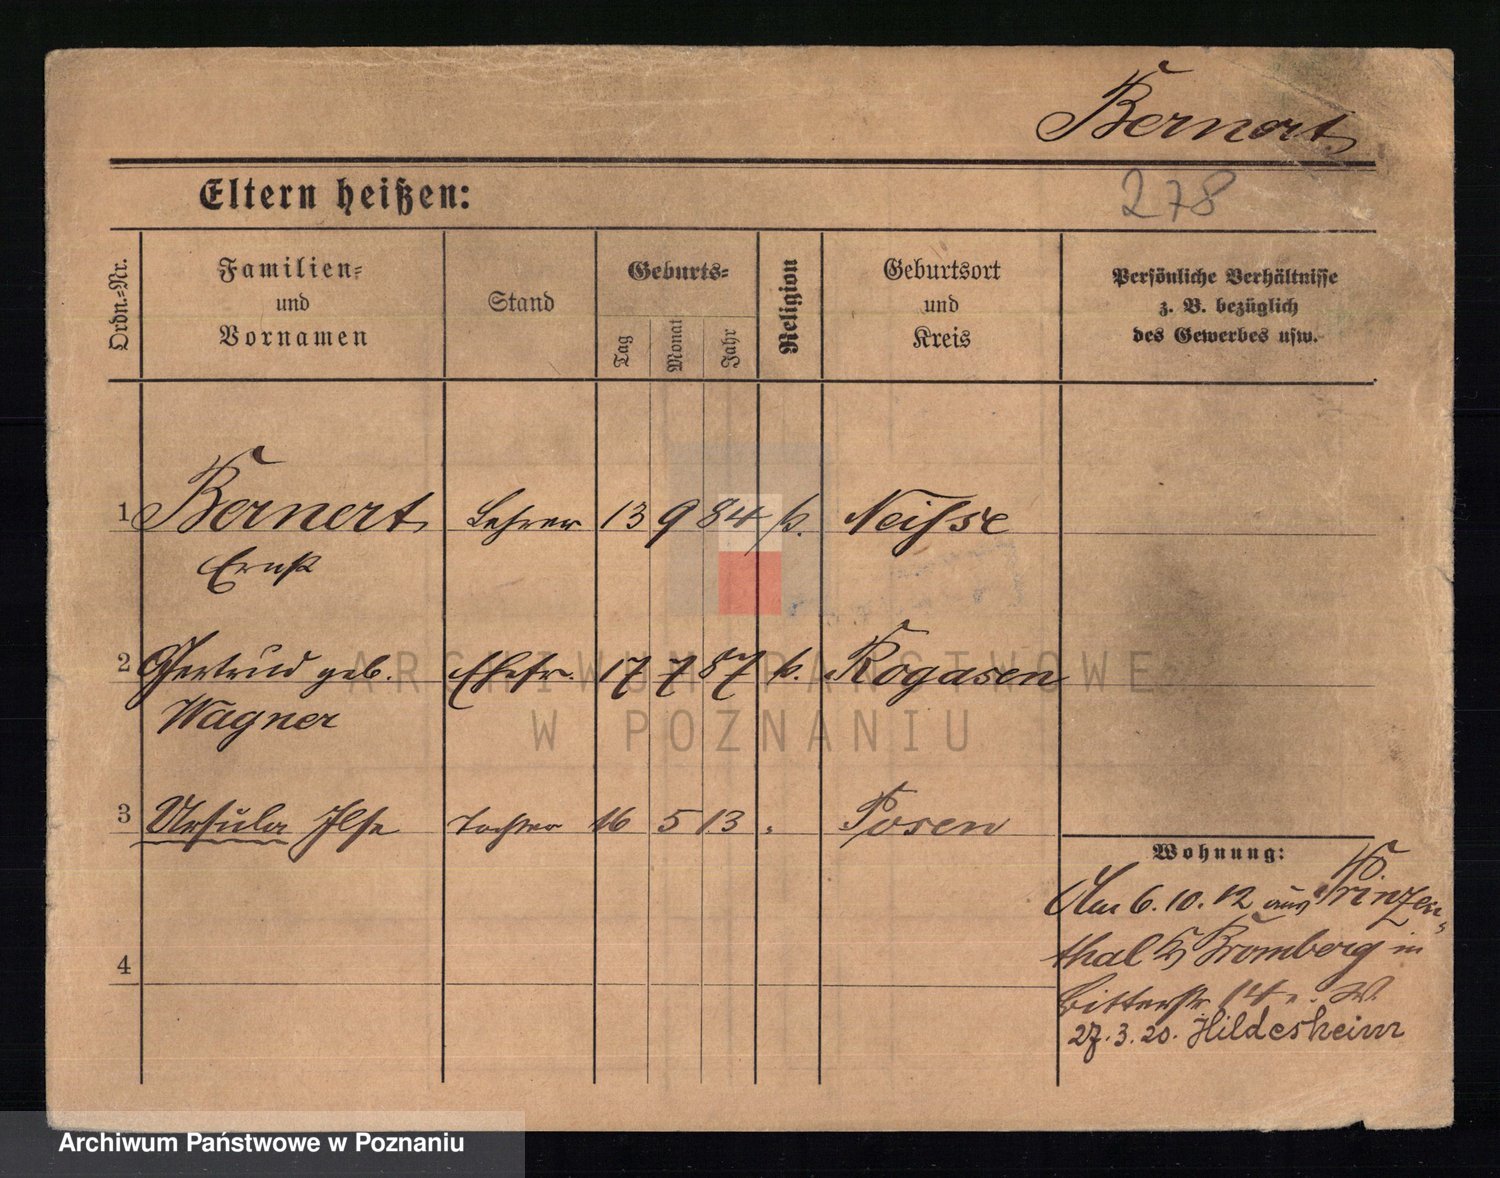 Bernert
278
Eltern heißen:
Ordn.-Nr.
Familien- und Vornamen
Stand
Geburts-
Tag
Monat
Jahr
Religion
Geburtsort und Kreis
Persönliche Verhältnisse z. B. bezüglich des Gewerbes usw.
1 Bernert Lehrer 13 9 84 k. Neisse
Ernst
2 Gertrud geb. Ehefr. 17 7 87 k. Rogasen
Wagner
3 Ursula Ilse Tochter 16 5 13 Posen
4
Wohnung:
Am 6.10.12 aus Prinzen-
thal b Bromberg in
14
27.3.20. Hildesheim
ARCHIWUM PAŃSTWOWE
W POZNANIU
Archiwum Państwowe w Poznaniu